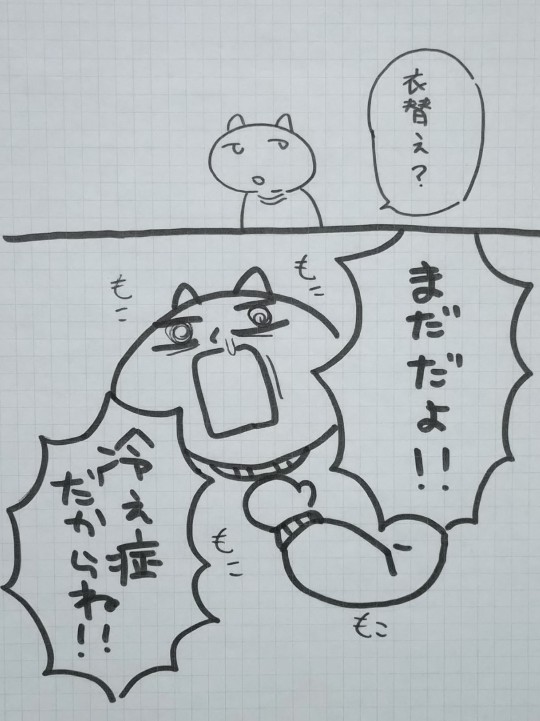 衣替え?
まだだよ!!
冷え症
だからね!!
もこ
もこ
もこ
もこ